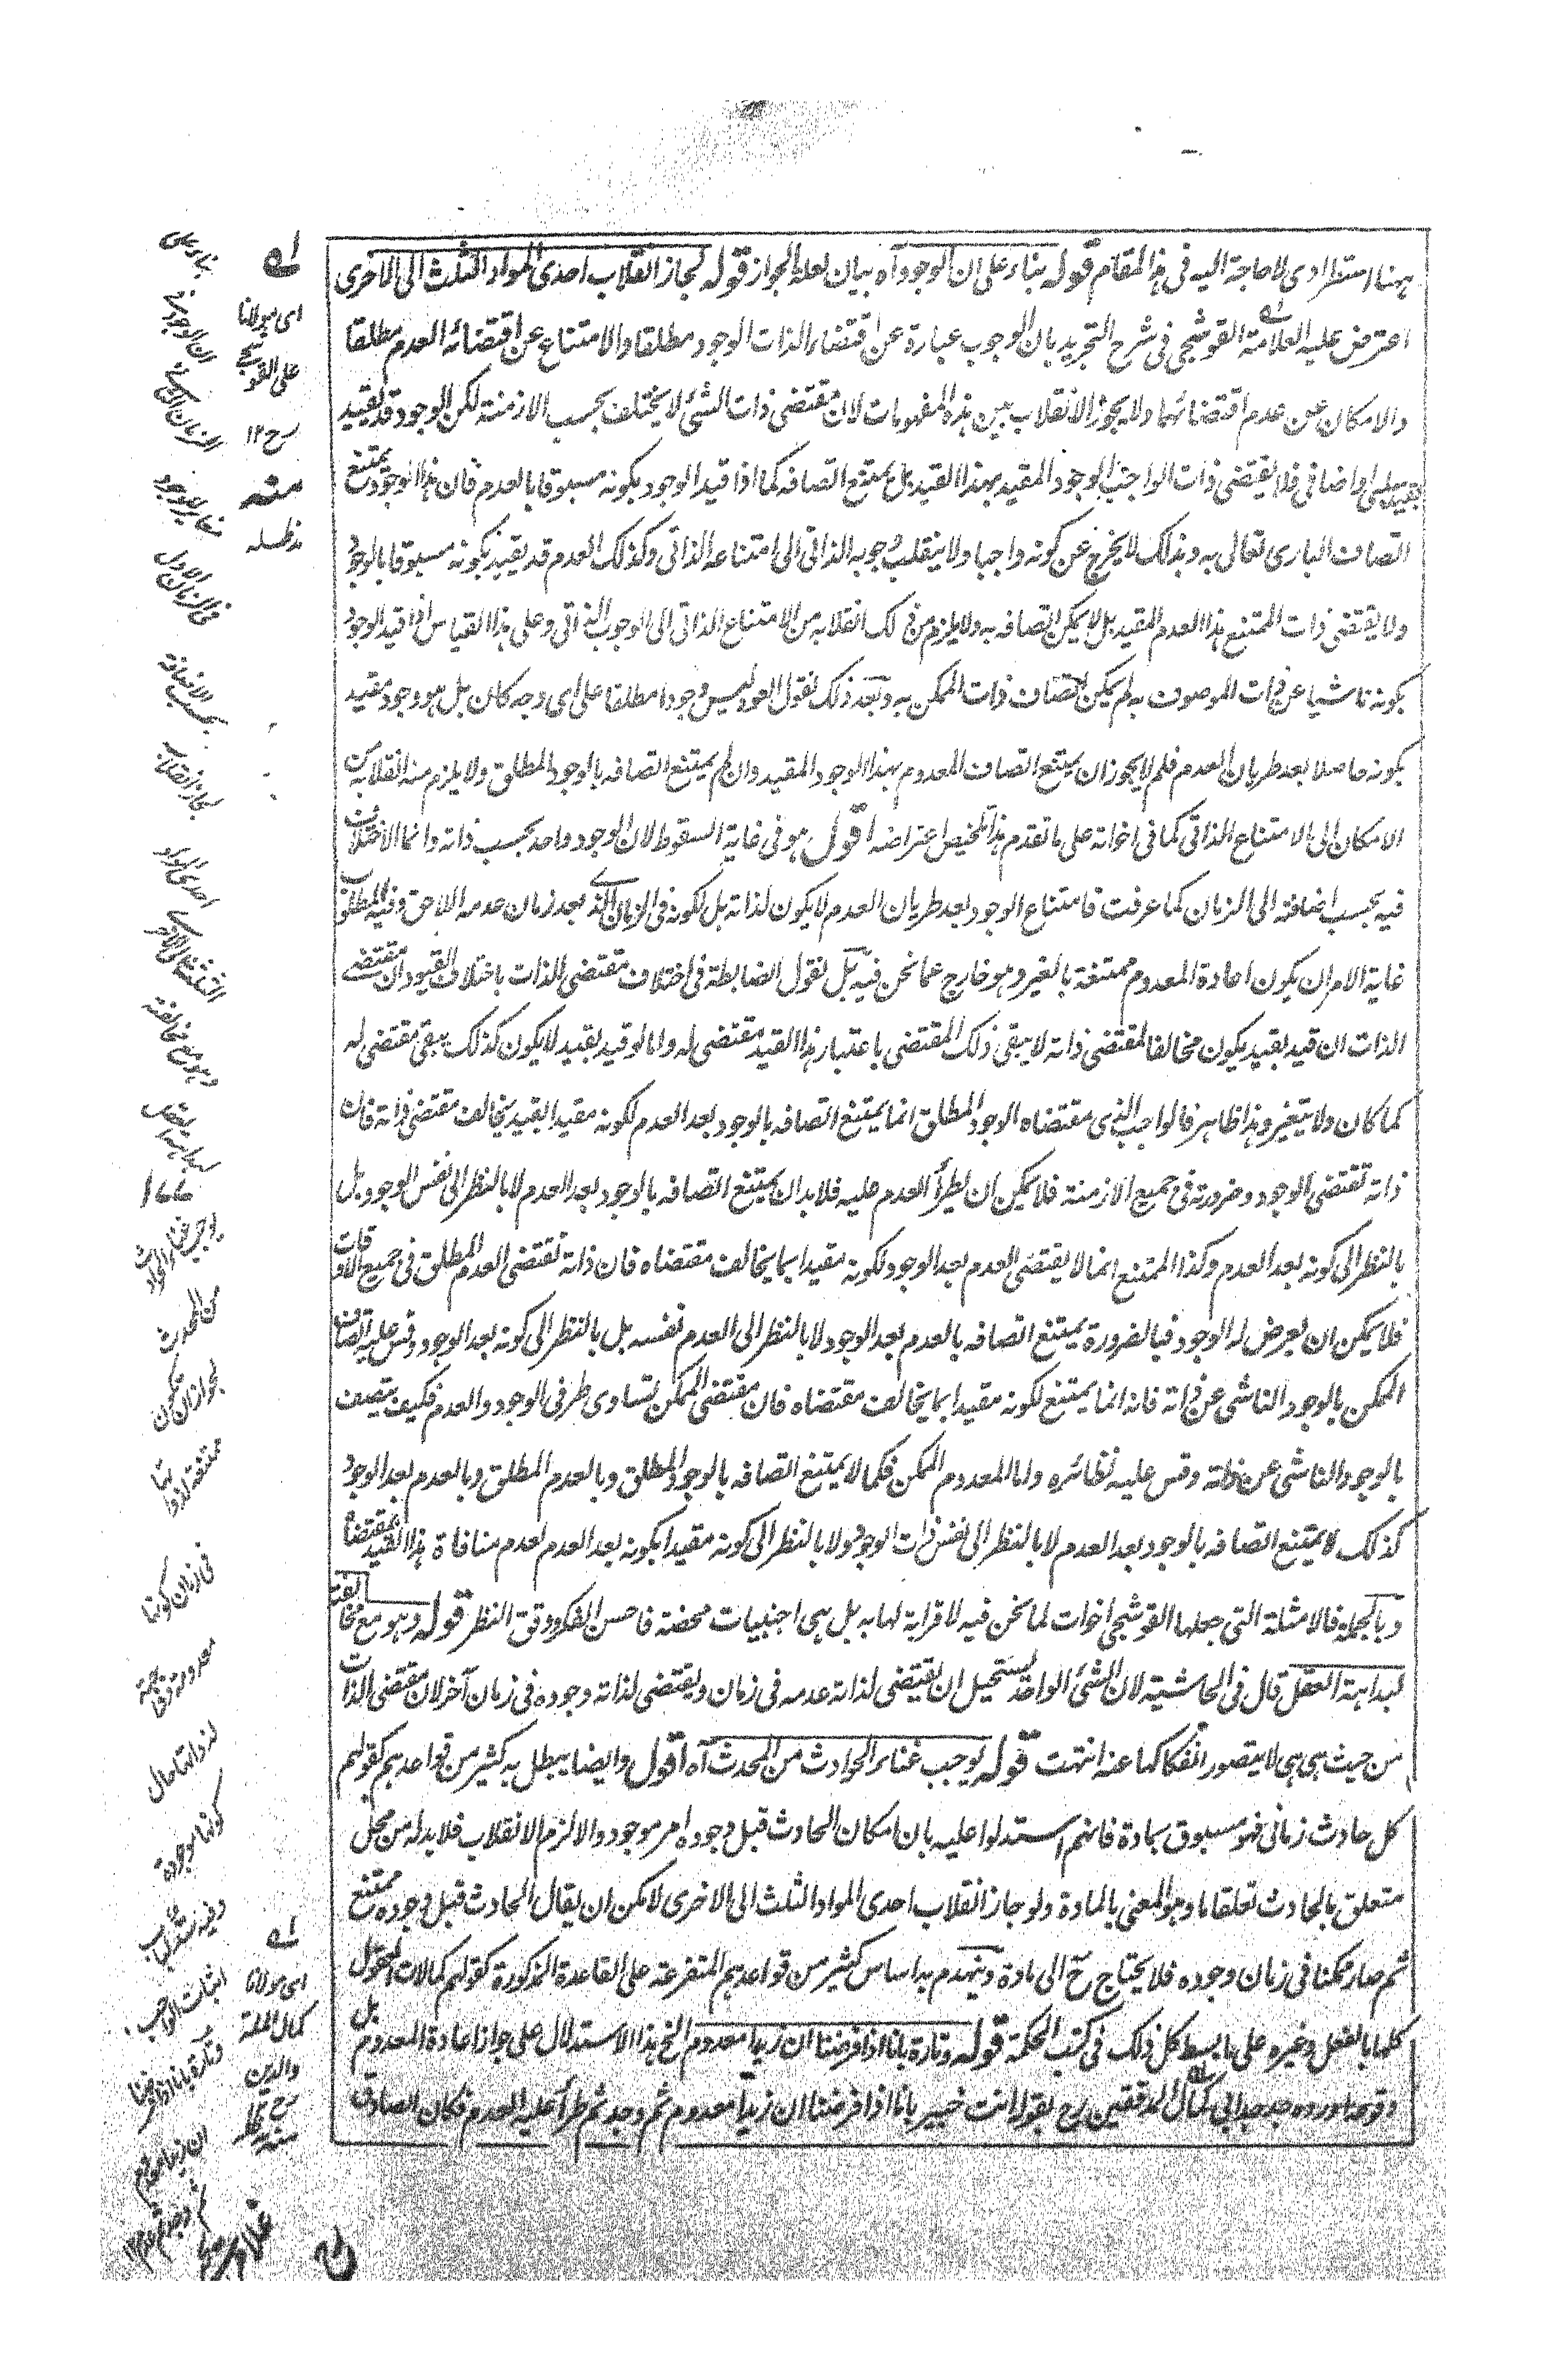 ههنا استطرادى لاحاجة اليه فى هذا المقام قوله بناء على ان الوجود آه بيان لعلة الجواز قوله لجاز انقلاب احدى المواد الثلث الى الاخرى
اعترض عليه العلامة القوشجى فى شرح التجريد بان الوجوب عبارة عن اقتضاء الذات الوجود مطلقا والامتناع عن اقتضائه العدم مطلقا
والامكان عن عدم اقتضائهما ولا يجوز الانقلاب بين هذه المفهومات لان مقتضى ذات الشئ لا يختلف بحسب الازمنة لكن الوجود قد يقيد
بقيد سلبى او اضافى فلا يقتضى ذات الواجب الوجود المقيد بهذا القيد بل يمتنع اتصافه كما اذا قيد الوجود بكونه مسبوقا بالعدم فان هذا الوجود يمتنع
اتصاف البارى تعالى به وبذلك لا يخرج عن كونه واجبا ولا ينقلب وجوبه الذاتى الى امتناعه الذاتى وكذلك العدم قد يقيد بكونه مسبوقا بالوجود
ولا يقتضى ذات الممتنع هذا العدم المقيد بل لا يمكن اتصافه به ولا يلزم من ذلك انقلابه من الامتناع الذاتى الى الوجوب الذاتى وعلى هذا القياس اذا قيد الوجود
بكونه ناشيا عن ذات الموصوف به لم يمكن اتصاف ذات الممكن به وبعد ذلك نقول العود ليس وجودا مطلقا على اى وجه كان بل هو وجود مقيد
بكونه حاصلا بعد طريان العدم فلم لا يجوز ان يمتنع اتصاف المعدوم بهذا الوجود المقيد وان لم يمتنع اتصافه بالوجود المطلق ولا يلزم منه انقلابه من
الامكان الى الامتناع الذاتى كما فى اخواته على ما تقدم هذا تلخيص اعتراضه اقول هو فى غاية السقوط لان الوجود واحد بحسب ذاته وانما الاختلاف
فيه بحسب اضافته الى الزمان كما عرفت فامتناع الوجود بعد طريان العدم لا يكون لذاته بل لكونه فى الزمان الذى بعد زمان عدمه اللاحق وفيه المطلوب
غاية الامر ان يكون اعادة المعدوم ممتنعة بالغير وهو خارج عما نحن فيه بل نقول الضابطة فى اختلاف مقتضى الذات باختلاف القيود ان مقتضى
الذات ان قيد بقيد يكون مخالفا لمقتضى ذاته لا يبقى ذلك المقتضى باعتبار هذا القيد مقتضى له واما لو قيد بقيد لا يكون كذلك يبقى مقتضى له
كما كان ولا يتغير وهذا ظاهر فالواجب الذى مقتضاه الوجود المطلق انما يمتنع اتصافه بالوجود بعد العدم لكونه مقيدا بقيد يخالف مقتضى ذاته فان
ذاته تقتضى الوجود وضرورته فى جميع الازمنة فلا يمكن ان يطرأ العدم عليه فلا بد ان يمتنع اتصافه بالوجود بعد العدم لا بالنظر الى نفس الوجود بل
بالنظر الى كونه بعد العدم وكذا الممتنع انما لا يقتضى العدم بعد الوجود لكونه مقيدا بما يخالف مقتضاه فان ذاته تقتضى العدم المطلق فى جميع الاوقات
فلا يمكن ان يعرض له الوجود فبالضرورة يمتنع اتصافه بالعدم بعد الوجود لا بالنظر الى العدم نفسه بل بالنظر الى كونه بعد الوجود وقس عليه اتصاف
الممكن بالوجود الناشى عن ذاته فانه انما يمتنع لكونه مقيدا بما يخالف مقتضاه فان مقتضى الممكن تساوى طرفى الوجود والعدم فكيف يتصف
بالوجود الناشى عن ذاته وقس عليه نظائره واما المعدوم الممكن فكما لا يمتنع اتصافه بالوجود المطلق وبالعدم المطلق وبالعدم بعد الوجود
كذلك لا يمتنع اتصافه بالوجود بعد العدم لا بالنظر الى نفس ذات الوجود ولا بالنظر الى كونه مقيدا بكونه بعد العدم لعدم منافاة هذا القيد بمقتضاه
وبالجملة فالامثلة التى جعلها القوشجى اخوات لما نحن فيه لا قرابة لها به بل هى اجنبيات محضة فاحسن الفكر ودقق النظر قوله وهو مع مخالفته
لبداهة العقل قال فى الحاشية لان الشئ الواحد يستحيل ان يقتضى لذاته عدمه فى زمان ويقتضى لذاته وجوده فى زمان آخر لان مقتضى الذات
من حيث هى هى لا يتصور انفكاكها عنه انتهت قوله يوجب غناء الحوادث من المحدث آه اقول وايضا يبطل به كثير من قواعدهم كقولهم
كل حادث زمانى فهو مسبوق بمادة فانهم استدلوا عليه بان امكان الحادث قبل وجوده امر موجود والا لزم الانقلاب فلا بد له من محل
متعلق بالحادث تعلقا ما وهو المعنى بالمادة ولو جاز انقلاب احدى المواد الثلث الى الاخرى لامكن ان يقال الحادث قبل وجوده ممتنع
ثم صار ممكنا فى زمان وجوده فلا يحتاج ح الى مادة وينهدم به اساس كثير من قواعدهم المتفرعة على القاعدة المذكورة كقولهم كمالات العقول
كلها بالفعل وغيره على ما بسط كل ذلك فى كتب الحكمة قوله وتارة بانا اذا فرضنا ان زيدا معدوم الخ هذا الاستدلال على جواز اعادة المعدوم بل
وقوعه اورده جد جد ابى كمال المدققين رح بقوله انت خبير بانا اذا فرضنا ان زيدا معدوم ثم وجد ثم طرأ عليه العدم فكان الصادق
له
اى مولانا
على القوشجى
رح ١٢
منه
مد ظله
بناء على
ان الوجود فى
الزمان الثانى
مغاير للوجود
فى الزمان الاول
بحسب الاضافة
لجاز انقلاب
احدى المواد
الثلث الى الاخرى
وهو مع مخالفته
لبداهة العقل
١٧٧
يوجب غناء الحوادث
من المحدث
لجواز ان تكون
ممتنعة لذواتها
فى زمان كونها
معدومة وواجبة
لذواتها حال
كونها موجودة
وفيه سد لباب
اثبات الواجب
وتارة بانا اذا فرضنا
ان زيدا معدوم
ثم وجد ثم عدم ١٢
له
اى مولانا
كمال الملة
والدين
رح
منه